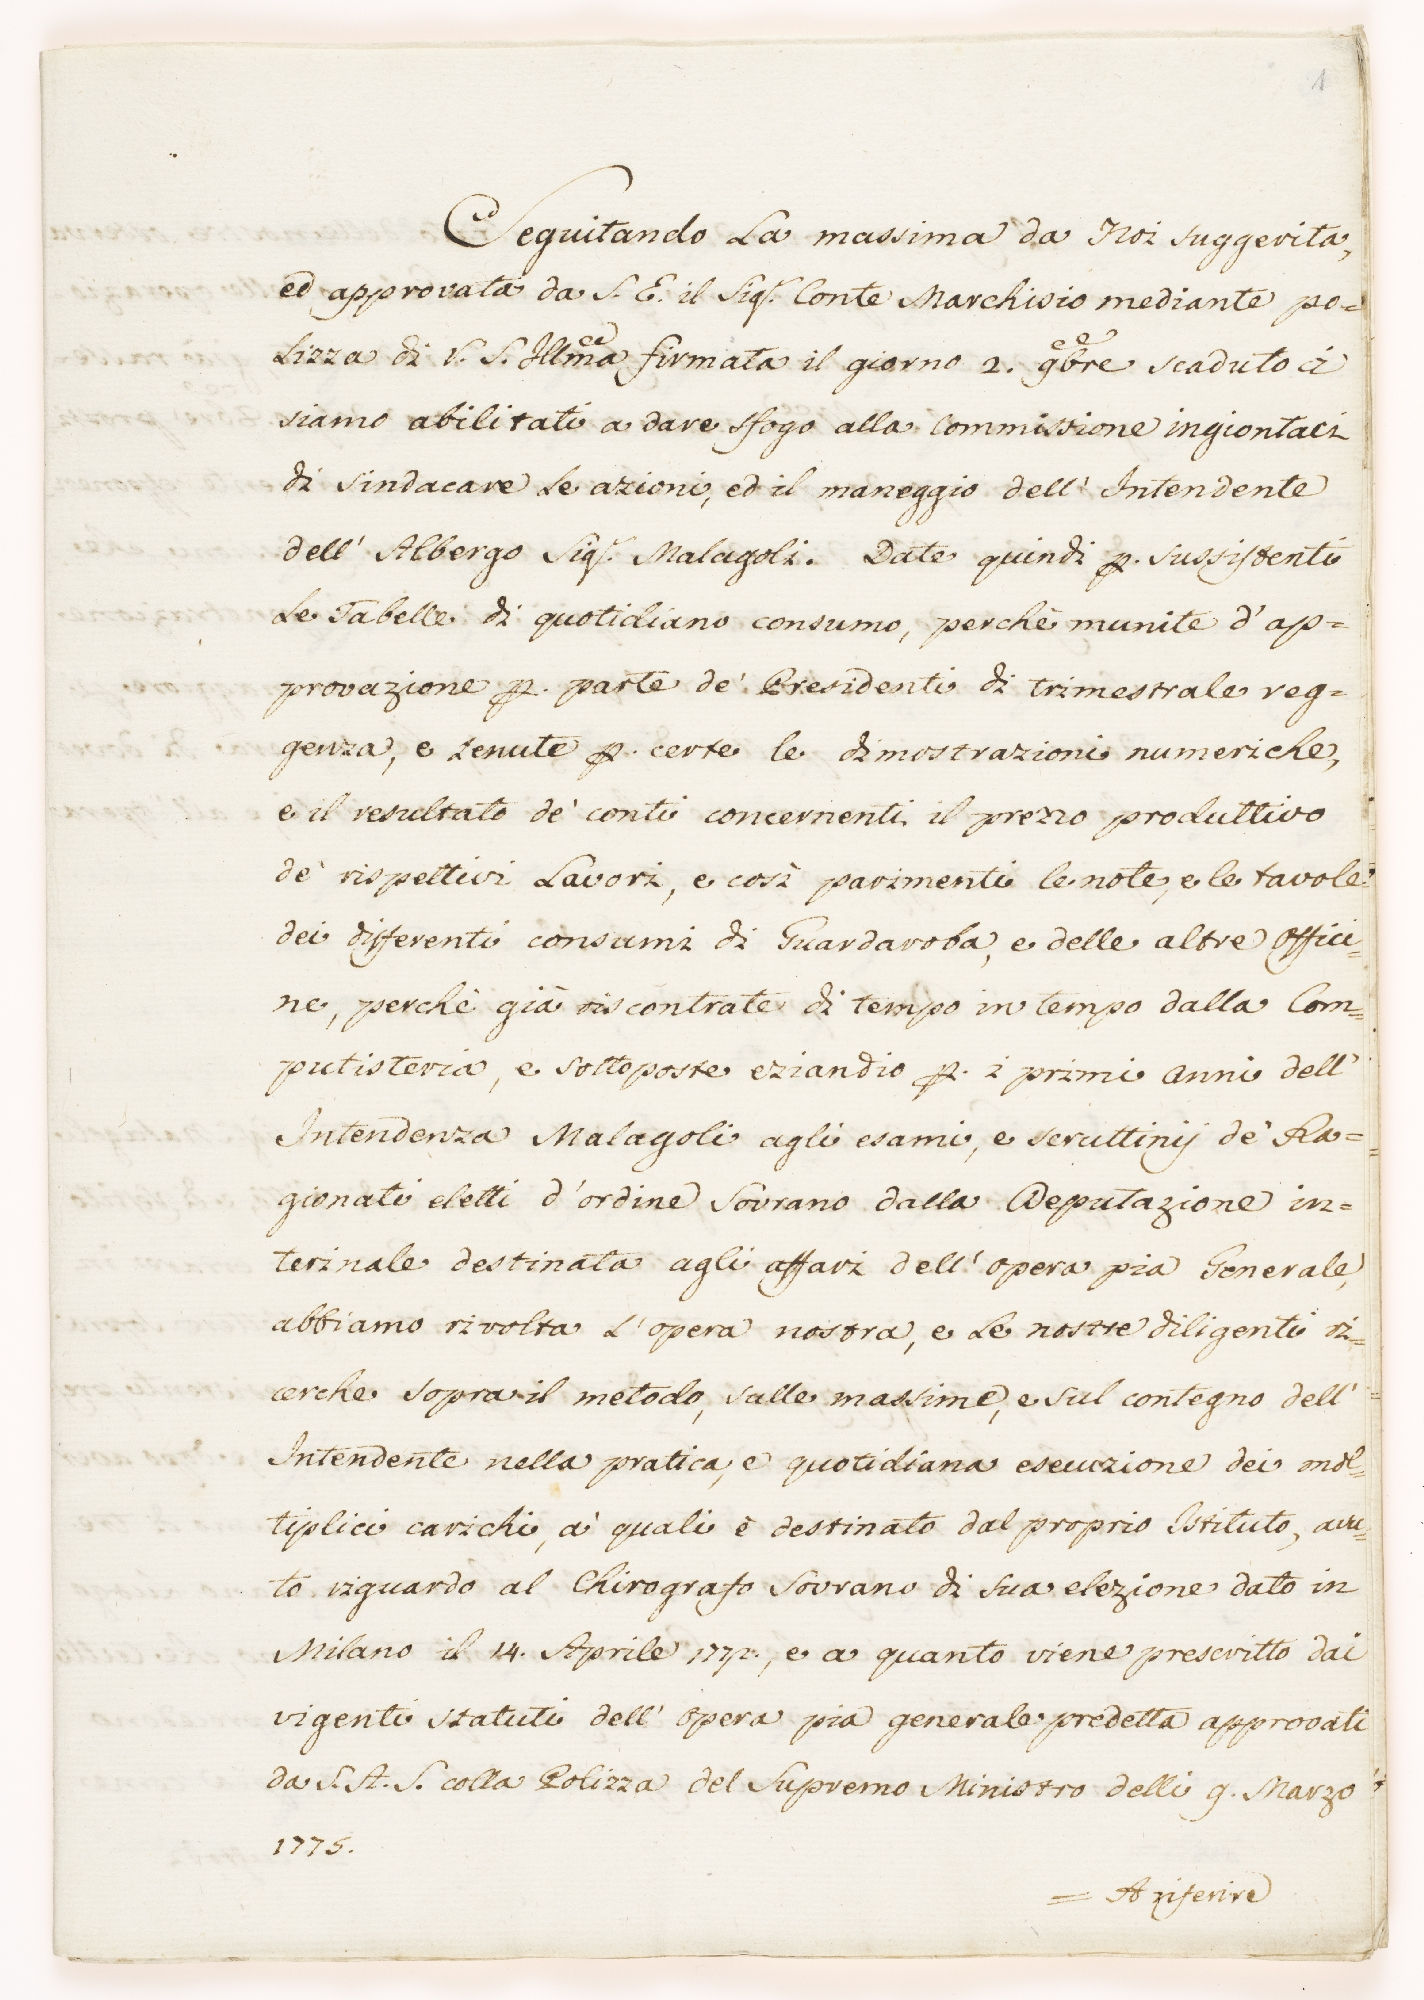 1
Seguitando la massima da Noi suggerita,
ed approvata da S. E. il Sigr. Conte Marchisio mediante po=
lizza di V. S. Illma firmata il giorno 2. 9bre scaduto ci
siamo abilitati a dare sfogo alla Commissione ingiontaci
di sindacare le azioni, ed il maneggio dell' Intendente
dell' Albergo Sigr. Malagoli. Date quindi p. sussistenti
le Tabelle di quotidiano consumo, perchè munite d' ap=
provazione p. parte de' Presidenti di trimestrale reg=
genza, e tenute p. certe le dimostrazioni numeriche,
e il resultato de' conti concernenti il prezzo produttivo
de' rispettivi Lavori, e così parimenti le note, e le tavole
dei differenti consumi di Guardaroba, e delle altre Offici=
ne, perchè già riscontrate di tempo in tempo dalla Com=
putisteria, e sottoposte eziandio p. i primi anni dell'
Intendenza Malagoli agli esami, e scruttinij de' Ra=
gionati eletti d' ordine Sovrano dalla Deputazione in=
terinale destinata agli affari dell' opera pia Generale,
abbiamo rivolta l' opera nostra, e le nostre diligenti ri=
cerche sopra il metodo, sulle massime, e sul contegno dell'
Intendente nella pratica, e quotidiana esecuzione dei mol=
tiplici carichi, a' quali è destinato dal proprio Istituto, avu=
to riguardo al Chirografo Sovrano di sua elezione dato in
Milano il 14. Aprile, e a quanto viene prescritto dai
vigenti statuti dell' opera pia generale predetta approvati
da S. A. S. colla Polizza del Supremo Ministro delli 9. Marzo
1775.
= A riferire